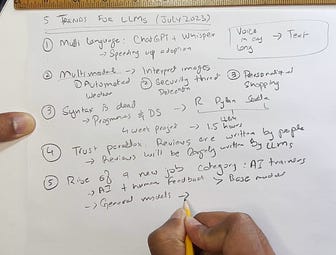 5 Trends for LLMs (July 2023)
① Multi language: ChatGPT + Whisper
→ Speeding up adoption
Voice in any lang → Text
② Multimodal → Interpret images
① Automated ② Security threat ③ Personalized
Detection Shopping
③ Syntax is dead
→ Programmers & DS → R Python
4 week project → 1.5 hours
④ Trust paradox. Reviews are written by people
→ Reviews will be largely written by LLMs
⑤ Rise of a new job category: AI trainers
→ AI + human feedback > Base model
→ General models →